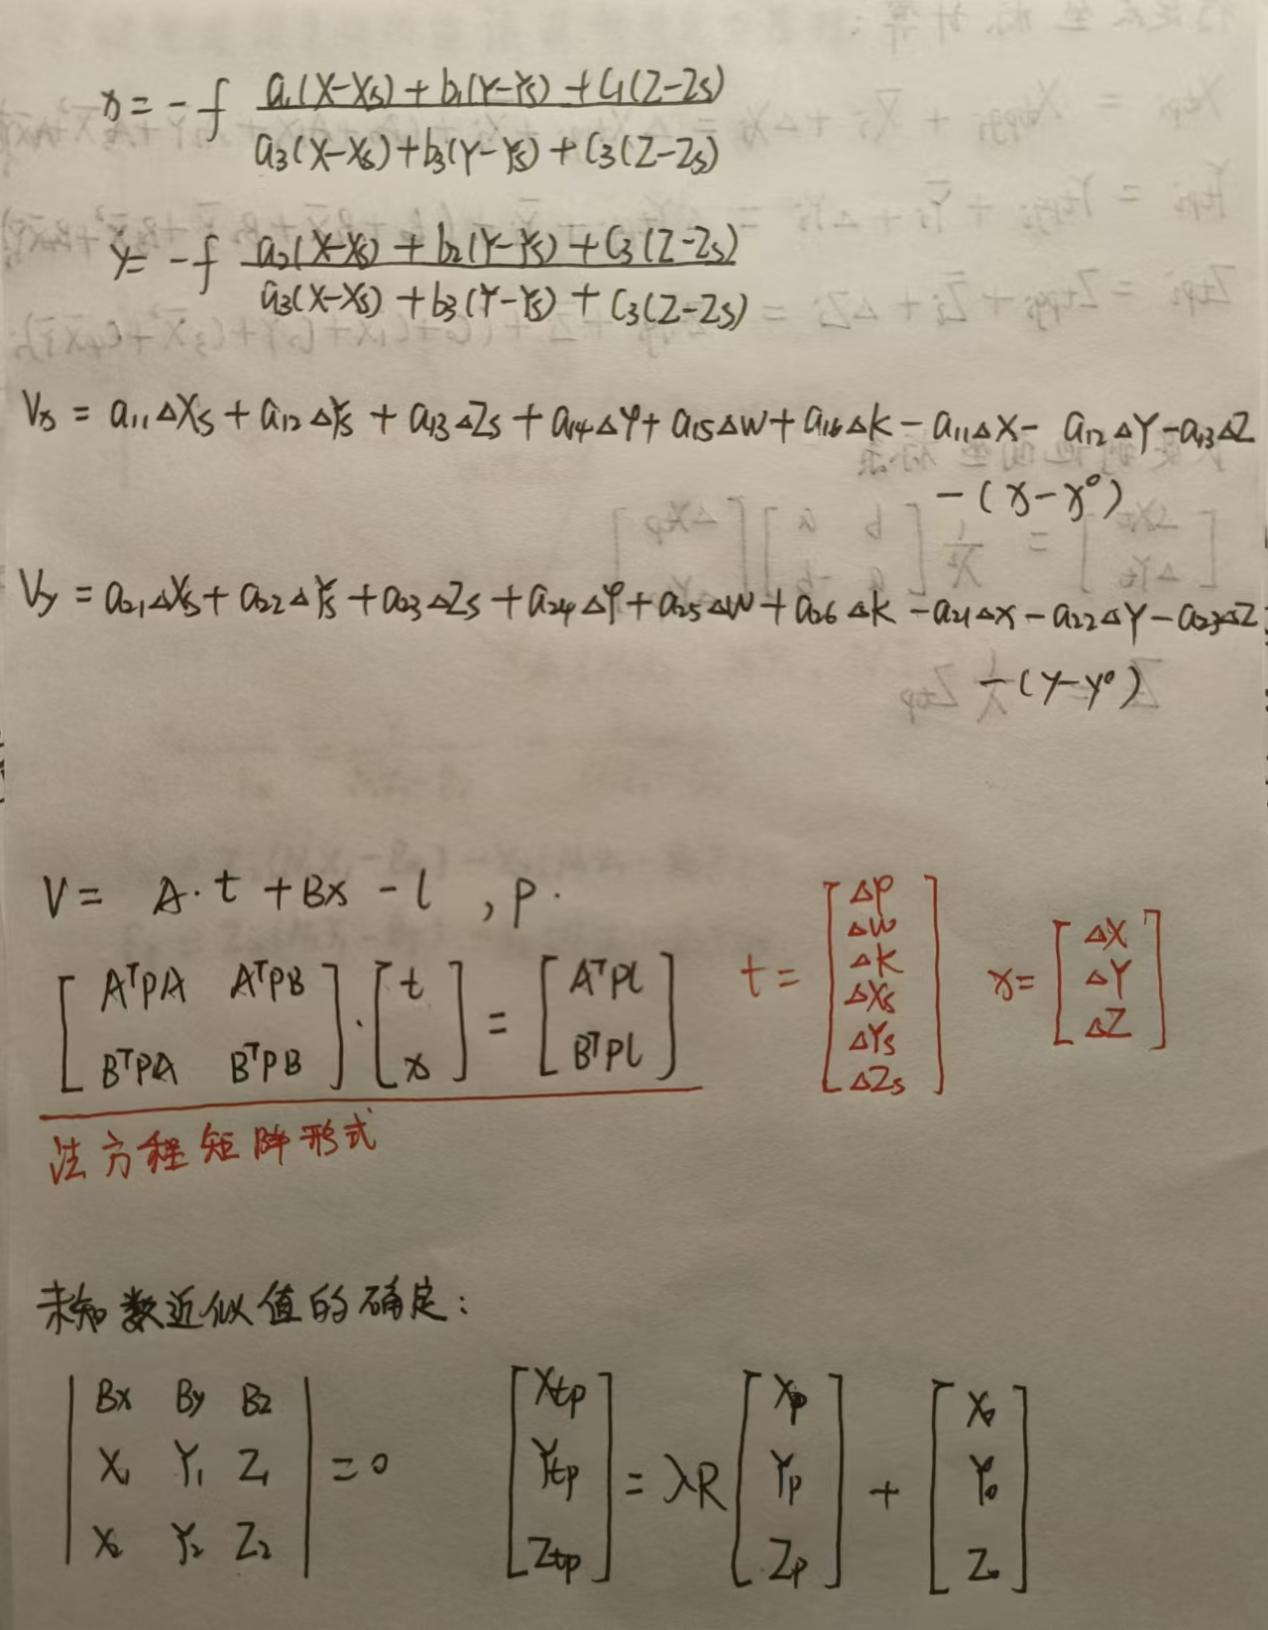 x = -f (a₁(X-Xs) + b₁(Y-Ys) + C₁(Z-Zs)) / (a₃(X-Xs) + b₃(Y-Ys) + C₃(Z-Zs))
y = -f (a₂(X-Xs) + b₂(Y-Ys) + C₃(Z-Zs)) / (a₃(X-Xs) + b₃(Y-Ys) + C₃(Z-Zs))
Vx = a₁₁ΔXs + a₁₂ΔYs + a₁₃ΔZs + a₁₄Δφ + a₁₅Δω + a₁₆Δk - a₁₁ΔX - a₁₂ΔY - a₁₃ΔZ
- (x - x⁰)
Vy = a₂₁ΔXs + a₂₂ΔYs + a₂₃ΔZs + a₂₄Δφ + a₂₅Δω + a₂₆Δk - a₂₁Δx - a₂₂ΔY - a₂₃ΔZ
- (y - y⁰)
V = A·t + Bx - l , P.
[AᵀPA AᵀPB; BᵀPA BᵀPB] · [t; x] = [AᵀPl; BᵀPl]
t = [Δφ; Δω; Δk; ΔXs; ΔYs; ΔZs]
x = [ΔX; ΔY; ΔZ]
法方程矩阵形式
未知数近似值的确定:
|Bx By Bz; X₁ Y₁ Z₁; X₂ Y₂ Z₂| = 0
[Xtp; Ytp; Ztp] = λR [Xp; Yp; Zp] + [X₀; Y₀; Z₀]